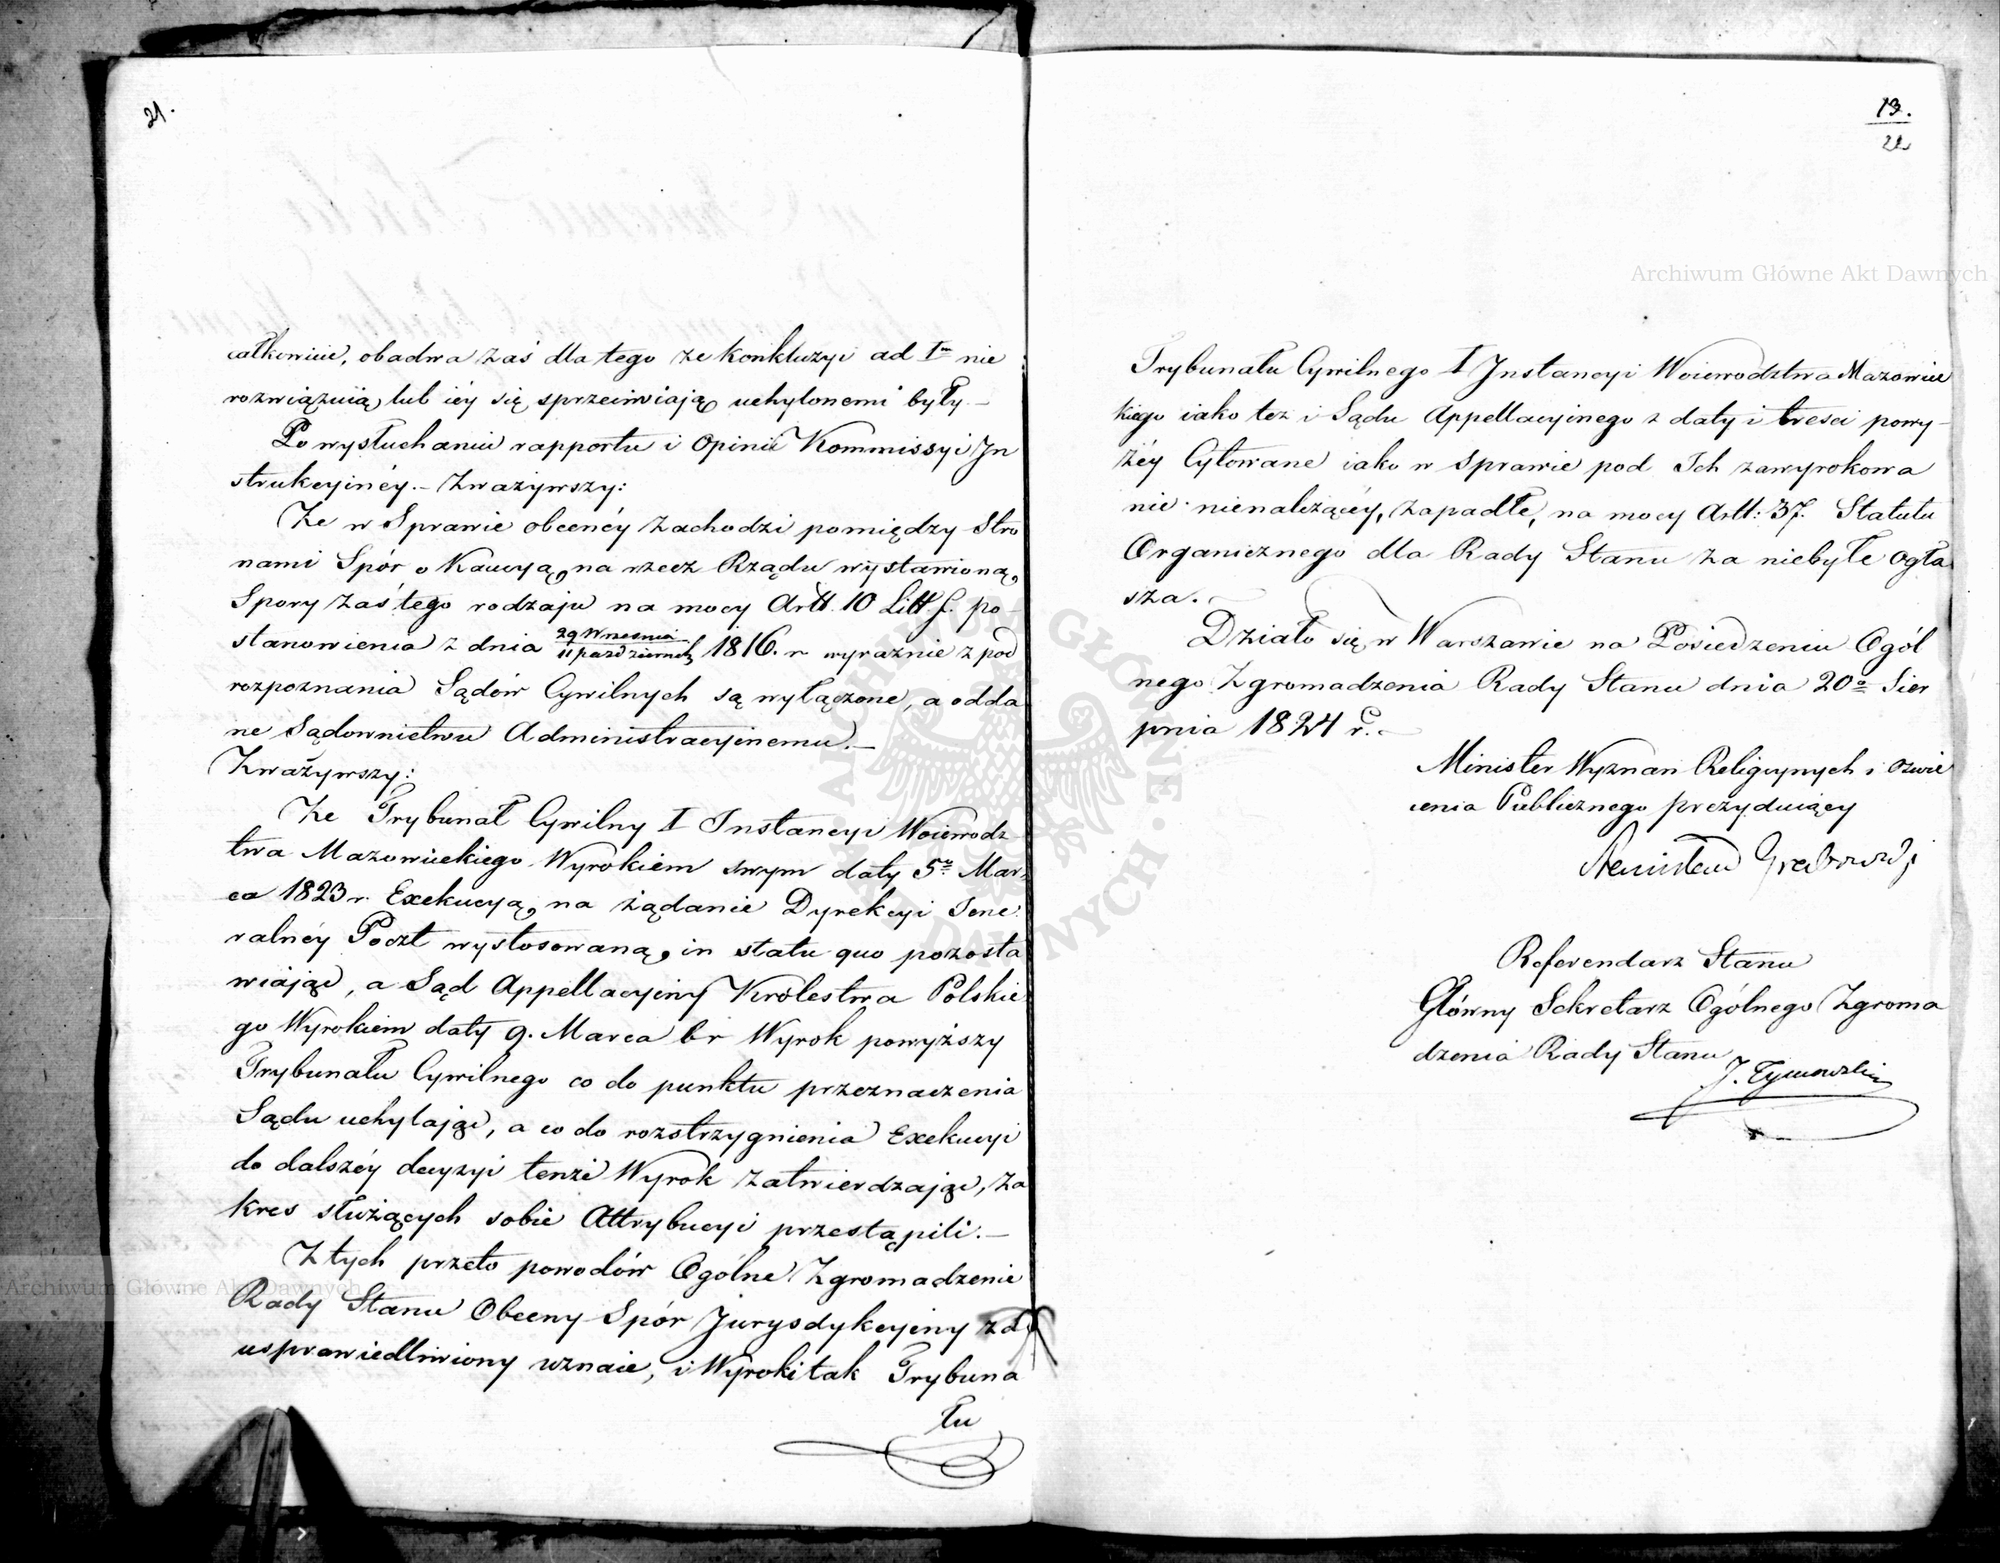 21.
całkowicie, obadwa zaś dla tego że konkluzyi ad Im nie
rozwiązuią, lub iéy się sprzeciwiaią, uchylonemi były.—
Po wysłuchaniu rapportu i Opinii Kommissyi In
strukcyinéy.— Zważywszy:
Że w Sprawie obecnéy zachodzi pomiędzy Stro
nami Spór o Kaucyą, na rzecz Rządu wystawioną,
Spory zaś tego rodzaju na mocy Artt. 10 Litt. f. po-
stanowienia z dnia 29 Września / 11 październ. 1816. r. wyraźnie z pod
rozpoznania Sądów Cywilnych są wyłączone, a odda
ne Sądownictwu Administracyinemu.—
Zważywszy:
Że Trybunał Cywilny I Instancyi Woiewodz
twa Mazowieckiego Wyrokiem swym daty 5go Mar-
ca 1823 r. Exekucyą, na żądanie Dyrekcyi Jene
ralnéy Poczt wystosowaną, in statu quo pozosta
wiając, a Sąd Appellacyiny Królestwa Polskie
go Wyrokiem daty 9. Marca br Wyrok powyższy
Trybunału Cywilnego co do punktu przeznaczenia
Sądu uchylając, a co do rozstrzygnienia Exekucyi
do dalszéy decyzyi tenże Wyrok zatwierdzając, za
kres służących sobie Attrybucyi przestąpili.—
Z tych przeto powodów Ogólne Zgromadzenie
Rady Stanu Obecny Spór Jurysdykcyiny za
usprawiedliwiony uznaie, i Wyroki tak Trybuna
łu
13.
22
Trybunału Cywilnego I Instancyi Woiewodztwa Mazowiec
kiego iako też i Sądu Appellacyinego z daty i treści powy-
żéy Cytowane iako w Sprawie pod Ich zawyrokowa
nie nienależącéy, zapadłe, na mocy Artt: 37. Statutu
Organicznego dla Rady Stanu za niebyłe ogła
sza.—
Działo się w Warszawie na Posiedzeniu Ogól
nego Zgromadzenia Rady Stanu dnia 20o Sier
pnia 1824 r.—
Minister Wyznań Religiynych i Oświe
cenia Publicznego prezyduiący
Stanisław Grabowski
Referendarz Stanu
Główny Sekretarz Ogólnego Zgroma
dzenia Rady Stanu
J. Tymowski
Archiwum Główne Akt Dawnych
Archiwum Główne Akt Dawnych
ARCHIWUM GŁÓWNE AKT DAWNYCH